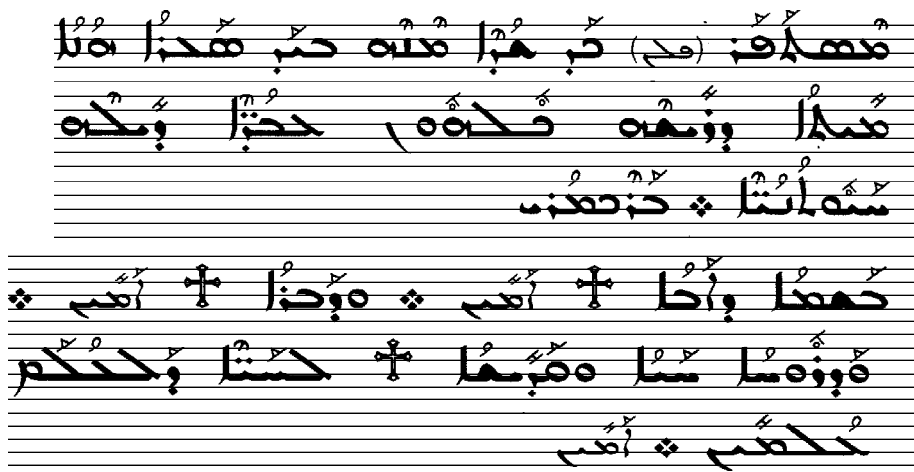 ܡܶܣܬܰܦܰܪ (ܦܠܢ) ܟܰܕ ܫܳܕܶܐ ܡܶܢܶܗ ܒܝܰܕ ܣܰܥܪܳܐ ܗܳܢܳܐ
ܡܺܝܬܳܐ ܕܪܺܝܫܶܗ ܟܽܠܗܽܘܢ ܥܒܳܕܶ̈ܐ ܕܺܝܠܶܗ
ܚܰܝܽܘܬܳܢܳܝܶ̈ܐ ܀ ܒܰܪܶܟܡܳܪܝ
ܒܰܫܡܳܐ ܕܰܐܒܳܐ ✝ ܐܰܡܺܝܢ ܀ ܘܰܒܪܳܐ ✝ ܐܰܡܺܝܢ ܀
ܘܰܕܪܽܘܚܳܐ ܚܰܝܳܐ ܘܩܰܕܺܝܫܳܐ ✝ ܠܚܰܝܶ̈ܐ ܕܰܠܥܳܠܰܡ
ܥܳܠܡܺܝܢ ܀ ܐܰܡܺܝܢ